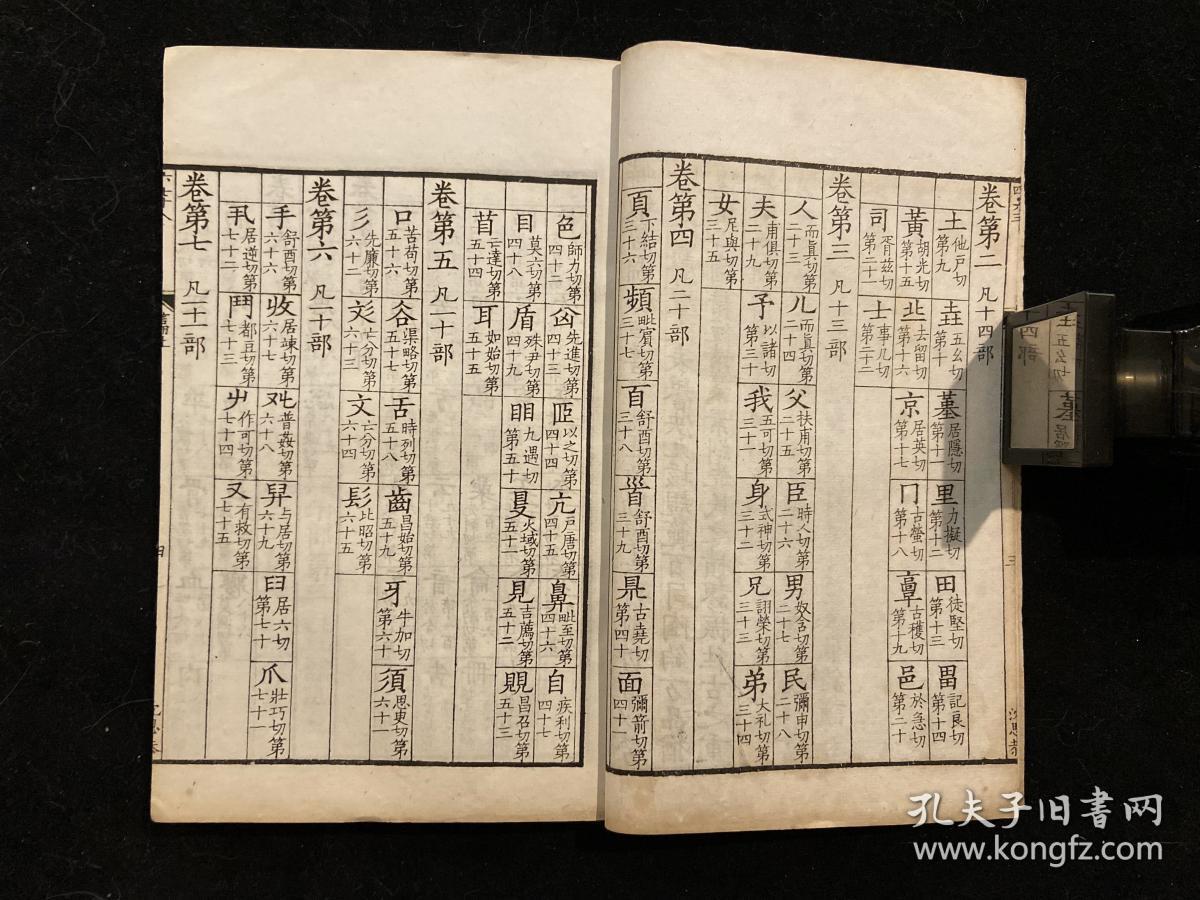 卷第二 凡十四部
土他戶切第九 垚五幺切第十 墓居隱切第十一 里力擬切第十二 田徒堅切第十三 畕記良切第十四
黃胡光切第十五 丠去留切第十六 京居英切第十七 冂古螢切第十八 𩫏古穫切第十九 邑於急切第二十
司胥茲切第二十一 士事几切第二十二
卷第三 凡十三部
人而眞切第二十三 儿而眞切第二十四 父扶甫切第二十五 臣時人切第二十六 男奴含切第二十七 民彌申切第二十八
夫甫俱切第二十九 予以諸切第三十 我五可切第三十一 身式神切第三十二 兄詡榮切第三十三 弟大礼切第三十四
女尼與切第三十五
卷第四 凡二十部
頁下結切第三十六 頻毗賓切第三十七 百舒酉切第三十八 𩠐舒酉切第三十九 県古堯切第四十 面彌箭切第四十一
色師力切第四十二 囟先進切第四十三 𦣞以之切第四十四 亢戶唐切第四十五 鼻毗至切第四十六 自疾利切第四十七
目莫六切第四十八 盾殊尹切第四十九 䀠九遇切第五十 𥄎火域切第五十一 見吉薦切第五十二 覞昌召切第五十三
苜亡達切第五十四 耳如始切第五十五
卷第五 凡一十部
口苦苟切第五十六 谷渠略切第五十七 舌時列切第五十八 齒昌始切第五十九 牙牛加切第六十 須思臾切第六十一
彡先廉切第六十二 彣亡分切第六十三 文亡分切第六十四 髟比昭切第六十五
卷第六 凡一十部
手舒酉切第六十六 𠬞居竦切第六十七 𠬜普姦切第六十八 舁与居切第六十九 𦥑居六切第七十 爪壯巧切第七十一
丮居逆切第七十二 鬥都豆切第七十三 𠂇作可切第七十四 又有救切第七十五
卷第七 凡一十一部
三
沈思恭
四
十四部
五幺切
孔夫子旧书网
www.kongfz.com